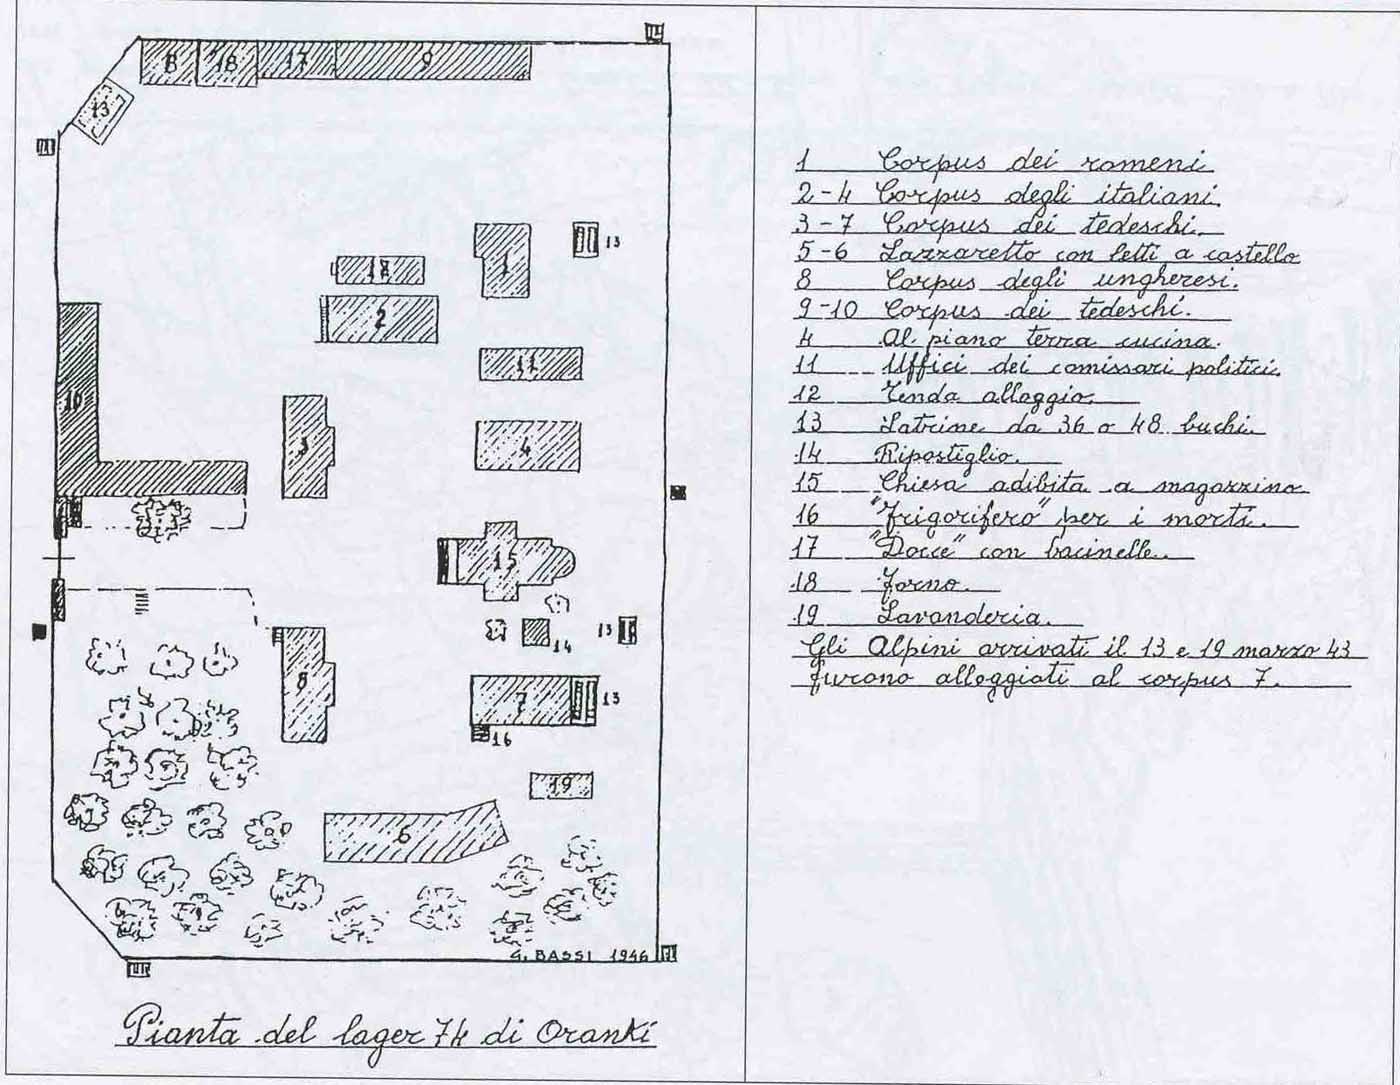 8 18 17 9
13
1 13
12
2
11
10 3 4
15
13
14
5
7 13
16
19
6
G. BASSI 1946
Pianta del lager 74 di Oranki
1 Corpus dei romeni
2-4 Corpus degli italiani.
3-7 Corpus dei tedeschi.
5-6 Lazzaretto con letti a castello
8 Corpus degli ungheresi.
9-10 Corpus dei tedeschi.
4 Al piano terra cucina.
11 Uffici dei comissari politici.
12 Tenda alloggio.
13 Latrine da 36 o 48 buchi.
14 Ripostiglio.
15 Chiesa adibita a magazzino
16 "Frigorifero" per i morti.
17 "Docce" con bacinelle.
18 Forno.
19 Lavanderia.
Gli Alpini arrivati il 13 e 19 marzo 43
furono alloggiati al corpus 7.